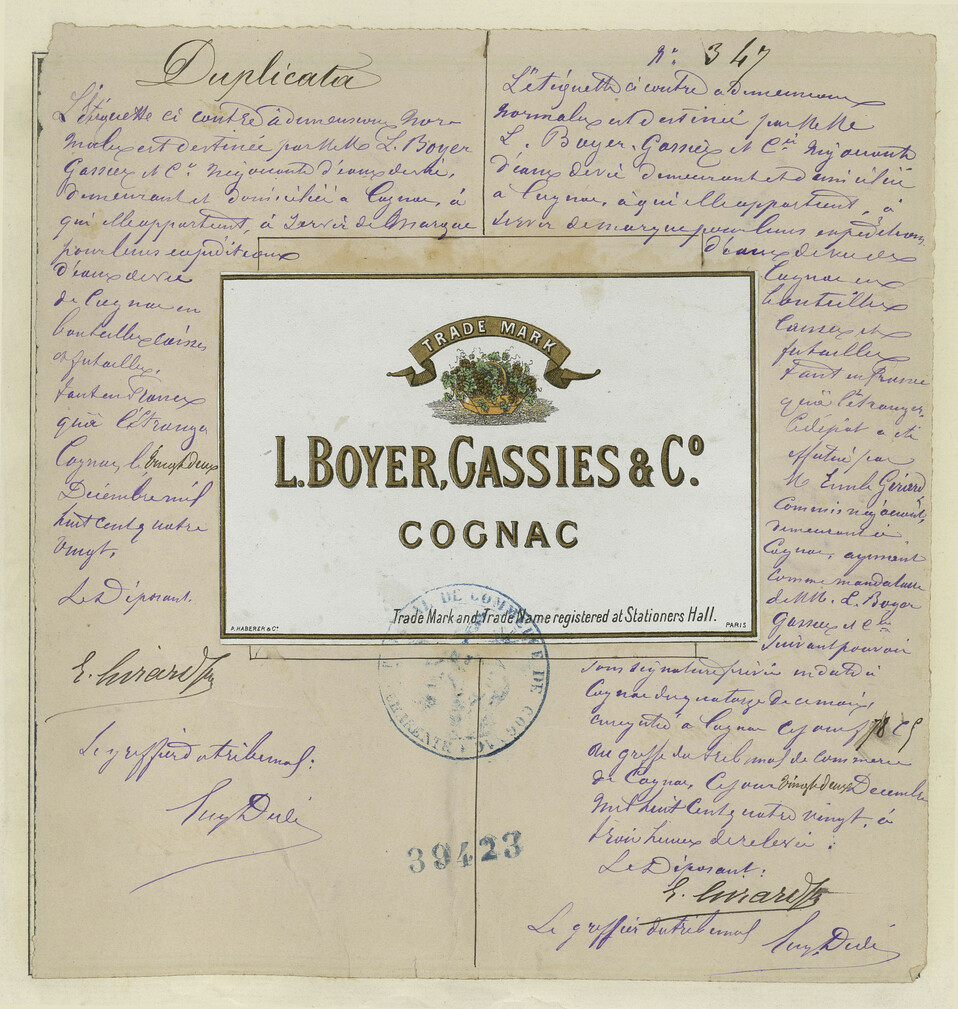 Duplicata
L'étiquette ci contre à dimensions Nor-
males est destinée par MM. L. Boyer
Gassies et Cie Négociants d'eaux de vie,
demeurant et domiciliés à Cognac, à
qui elle appartient, à servir de Marque
pour leurs expéditions
d'eaux de vie
de Cognac en
bouteilles caisses
et futailles,
tant en France
qu'à l'étranger
Cognac, le Vingt deux
Décembre mil
huit cent quatre
vingt.
Le Déposant.
E. Girard
Le greffier du tribunal:
No 347
L'étiquette ci contre à dimensions
normales est destinée par MM
L. Boyer, Gassies et Cie Négociants
d'eaux de vie demeurant et domiciliés
à Cognac, à qui elle appartient, à
servir de marque pour leurs expéditions
d'eaux de vie de
Cognac en
bouteilles
caisses et
futailles
tant en France
qu'à l'étranger.
Le dépôt a été
effectué par
M. Emile Girard
Commis négociant,
demeurant à
Cognac, agissant
comme mandataire
de MM. L. Boyer
Gassies et Cie
suivant pouvoir
sous signature privée en date à
Cognac du quatorze de ce mois,
enregistré à Cognac ce jour
au greffe du tribunal de Commerce
de Cognac, ce jour Vingt deux Décembre
Mil huit cent quatre vingt, à
trois heures de relevée:
Le Déposant:
E. Girard
Le greffier du tribunal
TRADE MARK
L. BOYER, GASSIES & Co.
COGNAC
Trade Mark and Trade Name registered at Stationers Hall.
P. HABERER & Cie
PARIS
DE COMMERCE DE COGNAC
CHARENTE
39423